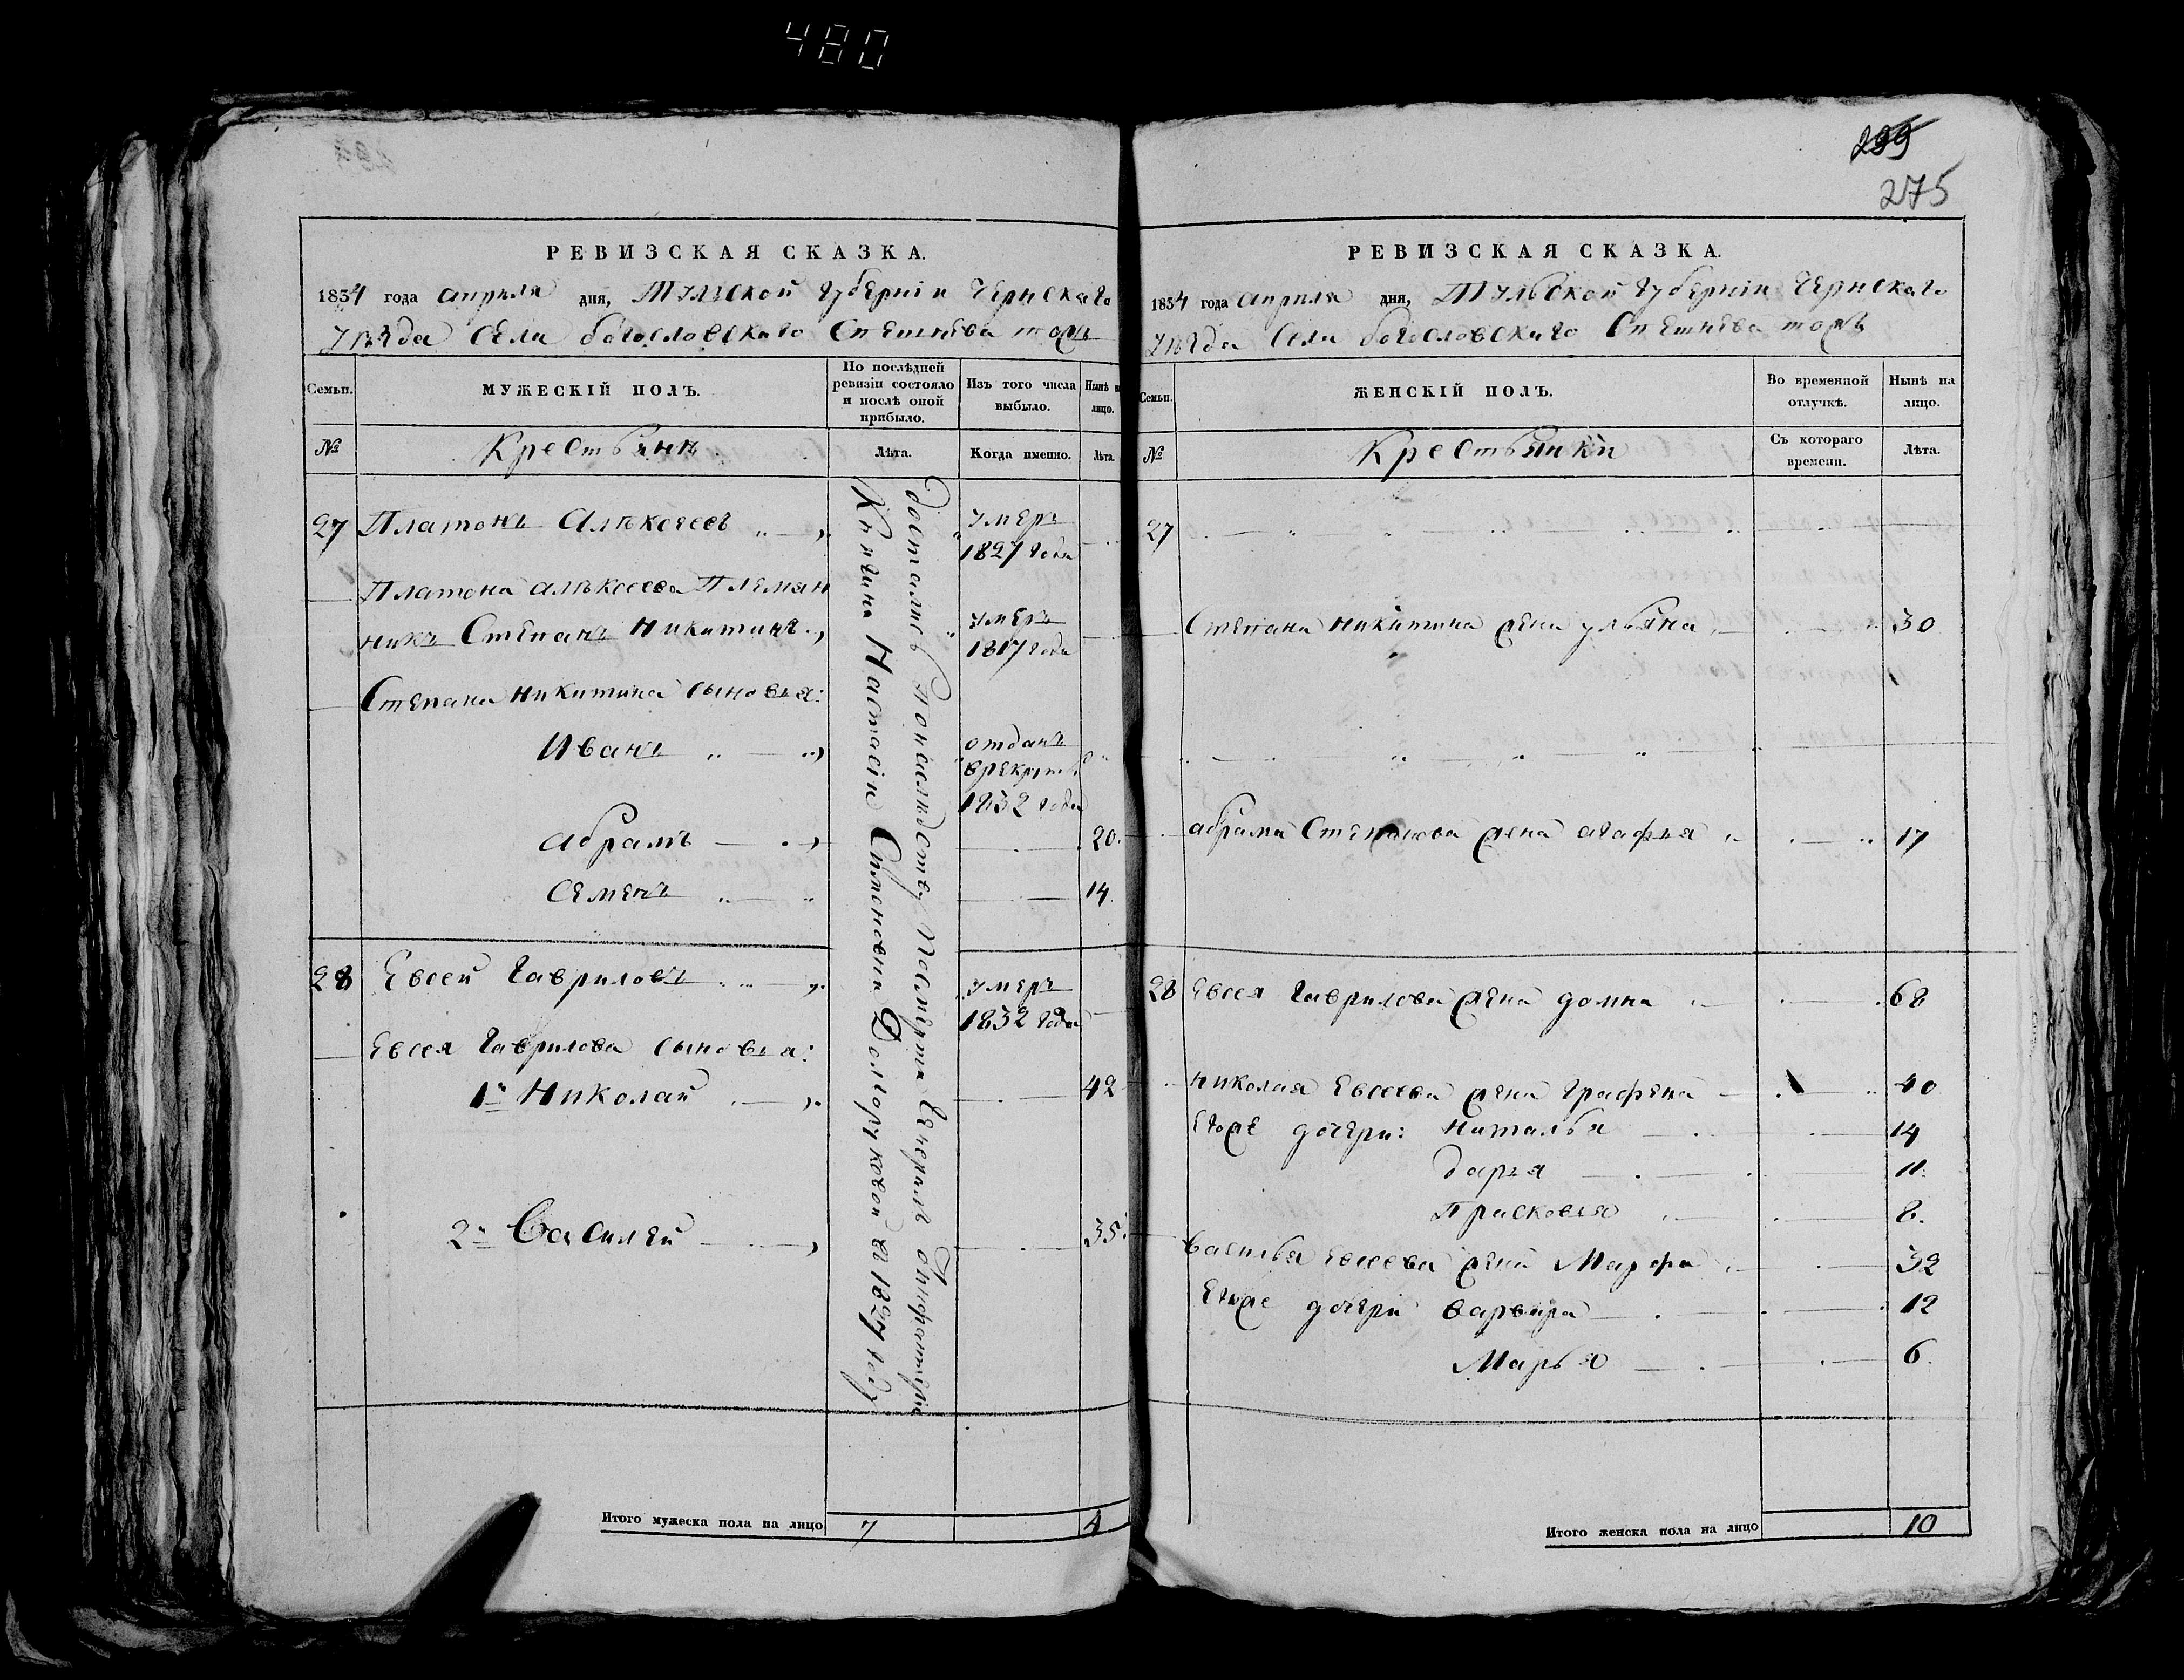 480
299
275
РЕВИЗСКАЯ СКАЗКА.
1834 года апреля дня, Тульской губернiи Чернскаго
уѣзда села богословскаго Спешнева тожъ
Семьи.
МУЖЕСКIЙ ПОЛЪ.
По послѣдней ревизiи состояло и послѣ оной прибыло.
Изъ того числа выбыло.
Нынѣ на лицо.
№
Крестьянѣ
Лѣта.
Когда именно.
Лѣта.
27 Платонъ Алѣксеевъ
умеръ
1827 года
Платона алѣксеева Племян
никъ Степанъ Никитинъ
умеръ
1817 года
Степана никитина сыновья:
Иванъ
отданъ
в рекруты
1832 года
абрамъ 20.
Семенъ 14.
28 Евсей Гавриловъ
умеръ
1832 года
Евсея Гаврилова сыновья:
1й Николай 42
2й Василей 35.
досталис понаслѣдству Посмерти Генерала Отинфантерiи
Княгини Настасiи Семеновни Долгоруковой в 1827 году
Итого мужеска пола на лицо 7 4
РЕВИЗСКАЯ СКАЗКА.
1834 года апреля дня, Тульской губернiи Чернскаго
уѣзда Села богословскаго Спешнева тожъ
Семьи.
ЖЕНСКIЙ ПОЛЪ.
Во временной отлучкѣ.
Нынѣ на лицо.
№
Крестьянки
Съ котораго времени.
Лѣта.
27
Степана никитина жена ульяна 30
абрама Степанова жена агафья 17
28 Евсея Гаврилова жена домна 68
николая Евсеева жена Графена 40
Егоже дочери: наталья 14
дарья 11.
Прасковья 8.
василья Евсеева жена Марфа 32
Егоже дочери варвара 12
Марья 6.
Итого женска пола на лицо 10